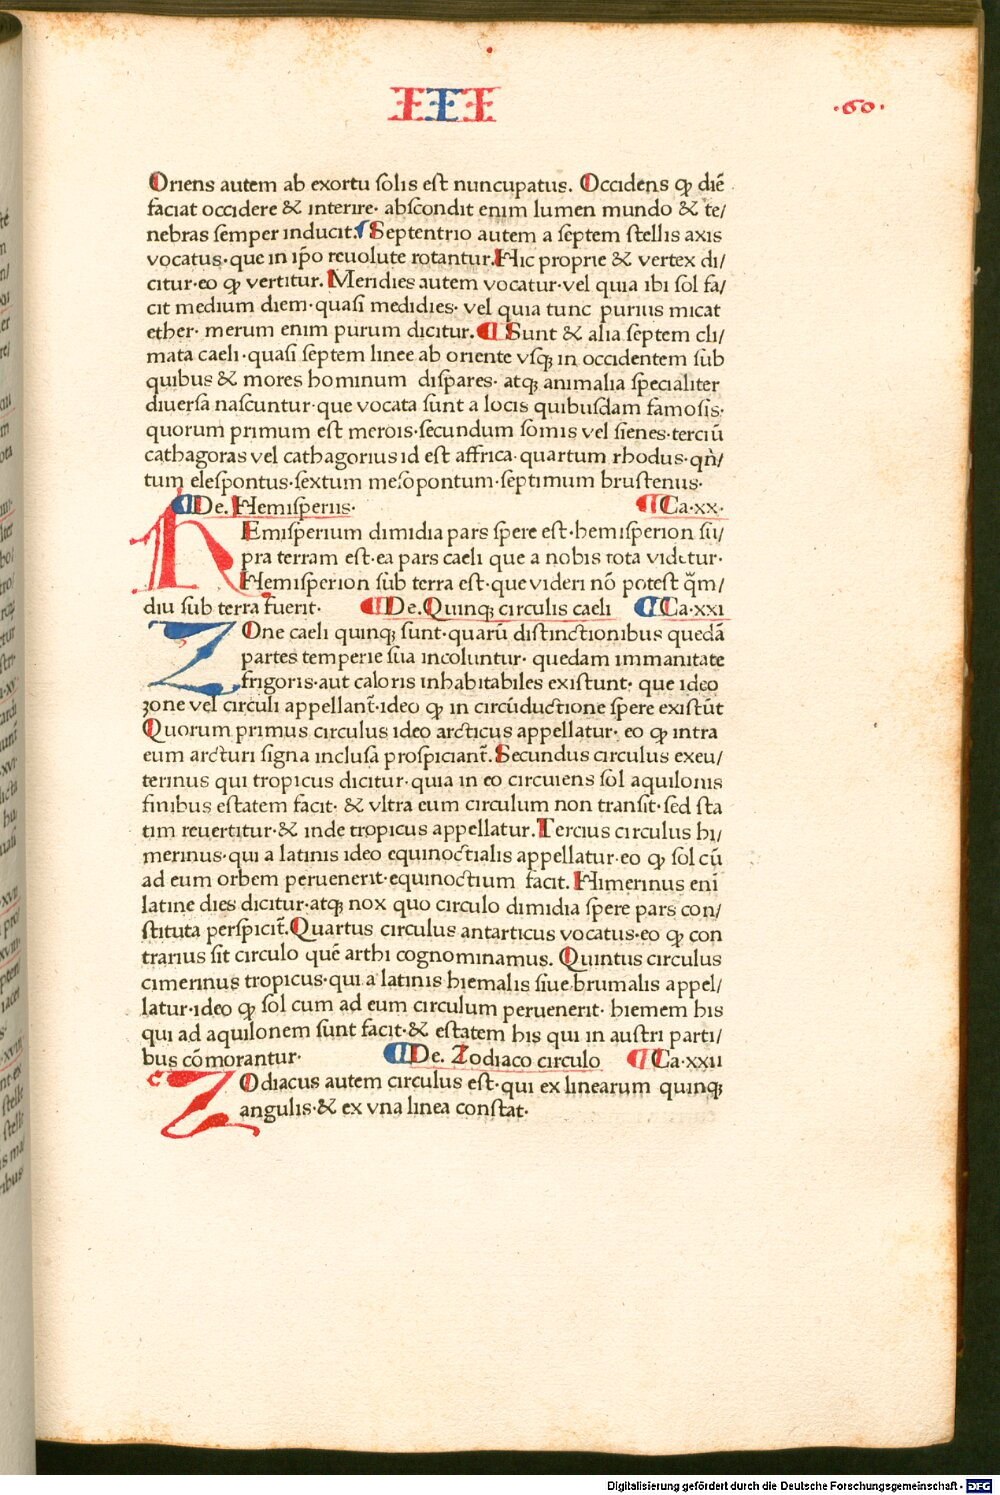 III
·60·
Oriens autem ab exortu solis est nuncupatus. Occidens ꝙ diē
faciat occidere & interire· abscondit enim lumen mundo & te/
nebras semper inducit. Septentrio autem a septem stellis axis
vocatus·que in ip̄o reuolute rotantur. Hic proprie & vertex di/
citur·eo ꝙ vertitur. Meridies autem vocatur·vel quia ibi sol fa/
cit medium diem·quasi medidies· vel quia tunc purius micat
ether· merum enim purum dicitur. ¶ Sunt & alia septem cli/
mata caeli·quasi septem linee ab oriente vsqꝫ in occidentem sub
quibus & mores hominum dispares· atqꝫ animalia specialiter
diuersa nascuntur·que vocata sunt a locis quibusdam famosis·
quorum primum est merois·secundum somis vel sienes·terciū
cathagoras vel cathagorius id est affrica·quartum rhodus·qn̄/
tum elespontus·sextum mesopontum·septimum brustenus·
¶ De. Hemisperiis· ¶ Ca·xx·
Emisperium dimidia pars spere est·hemisperion su/
pra terram est·ea pars caeli que a nobis tota videtur·
Hemisperion sub terra est·que videri nō potest q̄m/
diu sub terra fuerit· ¶ De. Quinqꝫ circulis caeli ¶ Ca·xxi
Z One caeli quinqꝫ sunt·quarū distinctionibus quedā
partes temperie sua incoluntur· quedam immanitate
frigoris·aut caloris inhabitabiles existunt· que ideo
zone vel circuli appellant̄·ideo ꝙ in circūductione spere existūt
Quorum primus circulus ideo arcticus appellatur· eo ꝙ intra
eum arcturi signa inclusa prospiciant̄. Secundus circulus exeu/
terinus qui tropicus dicitur·quia in eo circuiens sol aquilonis
finibus estatem facit· & vltra eum circulum non transit·sed sta
tim reuertitur·& inde tropicus appellatur. Tercius circulus hi/
merinus·qui a latinis ideo equinoctialis appellatur·eo ꝙ sol cū
ad eum orbem peruenerit·equinoctium facit. Himerinus enī
latine dies dicitur·atqꝫ nox quo circulo dimidia spere pars con/
stituta perspicit̄. Quartus circulus antarticus vocatus·eo ꝙ con
trarius sit circulo quē arthi cognominamus. Quintus circulus
cimerinus tropicus·qui a latinis hiemalis siue brumalis appel/
latur·ideo ꝙ sol cum ad eum circulum peruenerit· hiemem his
qui ad aquilonem sunt facit·& estatem his qui in austri parti/
bus cōmorantur· ¶ De. Zodiaco circulo ¶ Ca·xxii
Z Odiacus autem circulus est·qui ex linearum quinqꝫ
angulis·& ex vna linea constat·
Digitalisierung gefördert durch die Deutsche Forschungsgemeinschaft - DFG